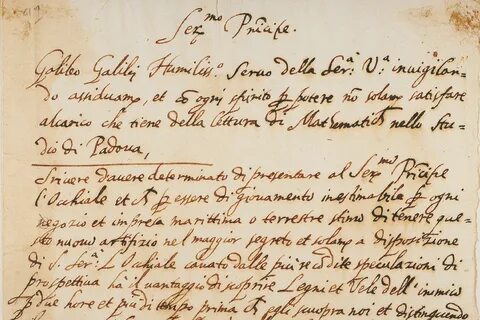 Ser.mo Prĩcipe.
Galileo Galilej Humiliss.o Servo della Ser.a V.a invigilan-
do assiduam.te, et cõ ogni spirito p potere nõ solam.te satisfare
alcarico che tiene della lettura di Mathematich nello stu-
dio di Padova,
Scrivere d'avere determinato di presentare al Ser.mo Prĩcipe
l'Occhiale et p essere di giovamento inestimabile p ogni
negozio et impresa marittima o terrestre stimo di tenere que-
sto nuovo artifizio nel maggior segreto et solam.te a disposizione
di S. Ser.a L'Occhiale cavato dalle più recõdite speculazioni di
prospettiva ha il vantaggio di scoprire Legni et Vele dell'inimico
p due hore et più di tempo prima egli scuopra noi et distinguendo